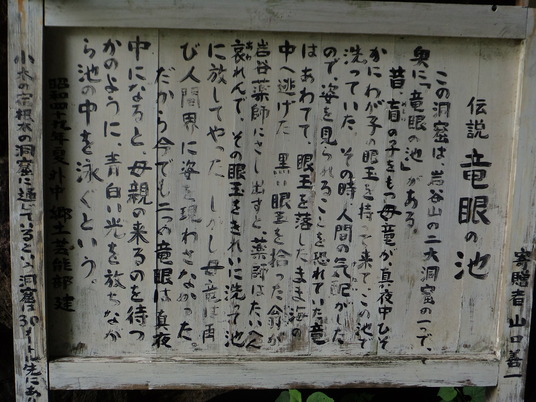 伝説 竜眼の池
この洞窟は、岩谷山の二大洞窟の一つで、
奥に「竜眼の池」がある。
昔、盲の子をもつ母竜が、真夜中ひそ
かにわが子の眼玉を持って来て、この池で
洗っていた。その時、人間の気配がした
ので、姿を見られることを恐れていた竜
はあわてて、眼玉を落したまま海の
中へ逃げた。黒い眼玉を拾った翁が
岩谷薬師にさし出すと、薬師はたいへん
哀れんで、その眼玉をきれいに洗って池
に放してやった。しかし母竜は再
び人間界に姿を現わさなかった。
だから今でも二つの竜眼は、真夜
中になると、母親の来るのを待つ
かのように、青白い光を放ちなが
ら池の中を泳ぐという。
昭和四十九年夏 外中 郷土芸能部 建
寄贈者 山口善一
小木の宿根木の洞窟に通じているという 洞窟は30メートル先にあり